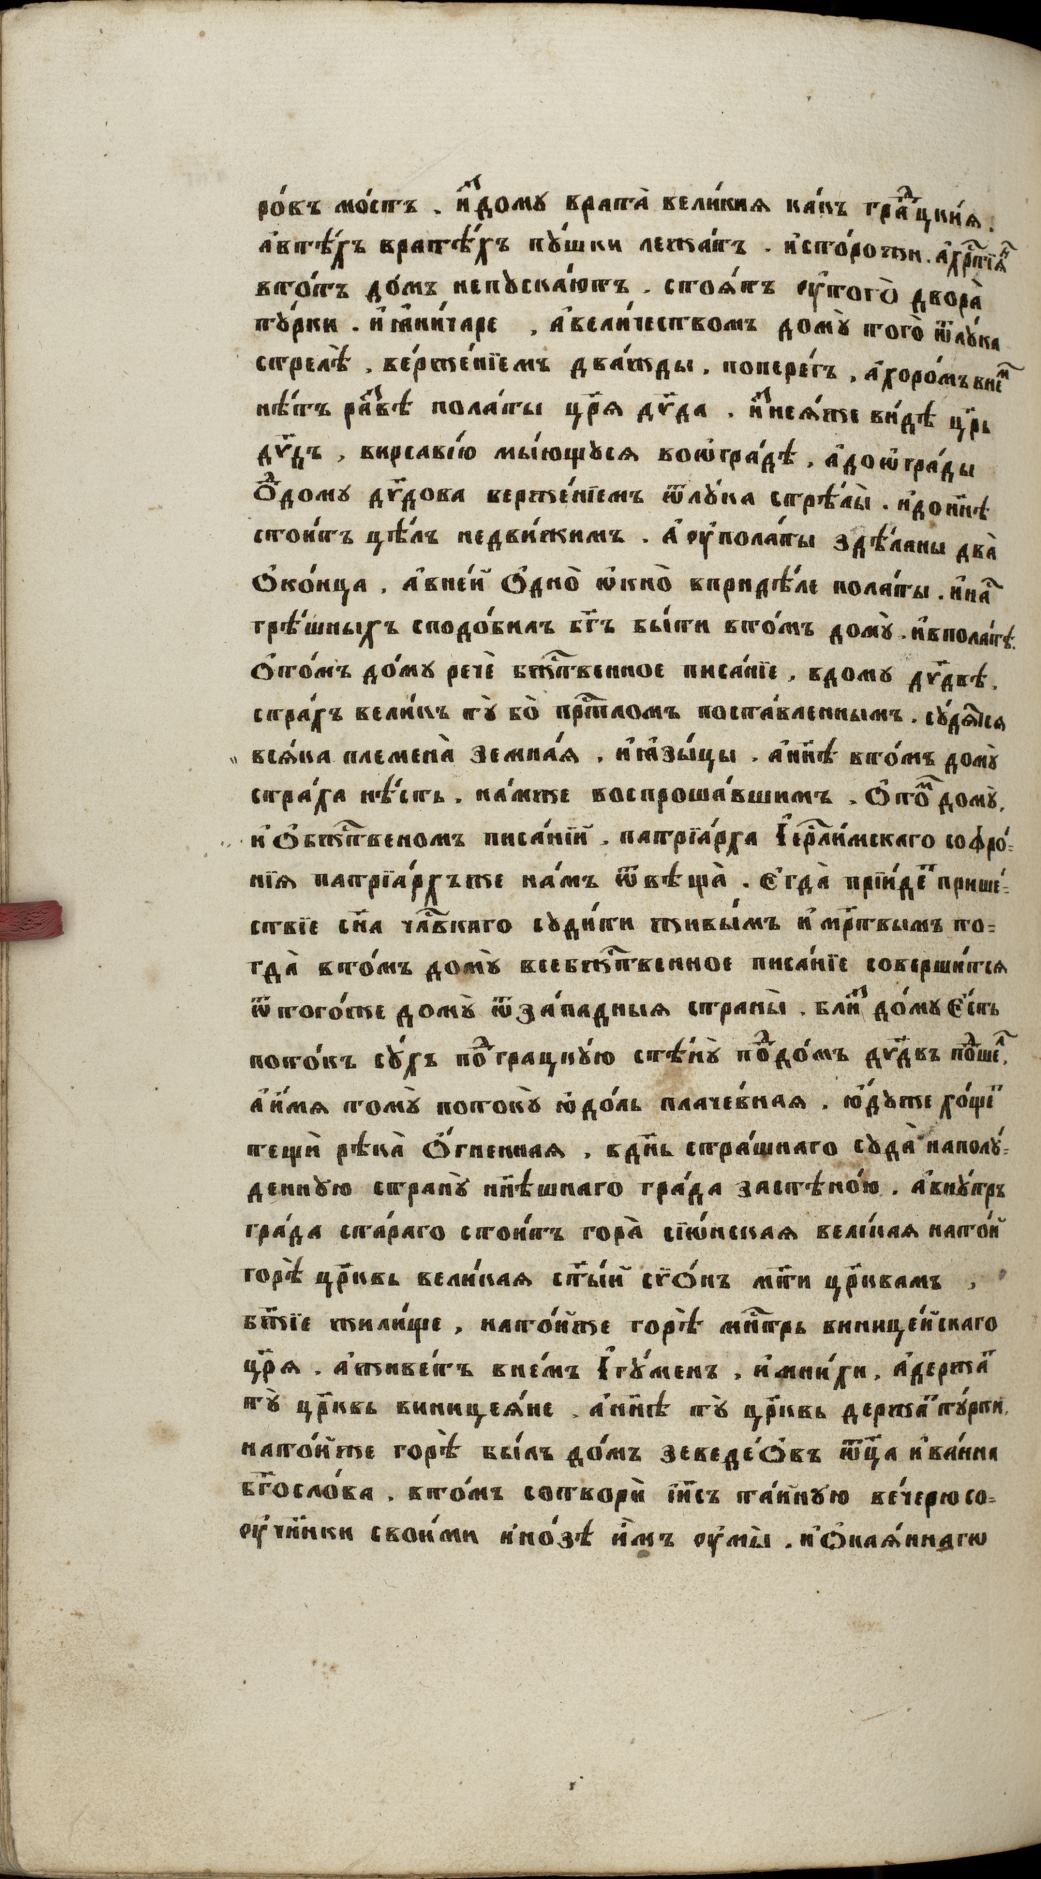 ро́въ мо́стъ . и҆ᲁ҇ дому врата̀ вели́кия ка́къ граⷣцки́я .
а҆втѣ́хъ вратѣ́хъ пу́шки лежа́тъ . и҆сто́рожи . а҆хрⷭ҇тїꙗⷩ҇
вто́тъ до́мъ непуска́ютъ . стоя́тъ ᲂу҆того̀ двора̀
ту́рки . и҆ꙗ҆ни́чаре , а҆вели́чествомъ дому̀ того̀ ѿлу́ка
стрелѣ́ , верже́нїемъ два́жды . попере́гъ , а҆хоро́мъ внеⷨ҇
нѣ́тъ ра́звѣ пола́ты цр҃я дв҃да . и҆знея́же ви́дѣ цр҃ь
дв҃дъ , вирсавїю мы́ющуся воѡ҆гра́дѣ , а҆доѡ҆гра́ды
ѿ дому дв҃дова верже́нїемъ ѿлу́ка стрѣ́лы̀ . и҆дон҃нѣ
стои́тъ цѣ́лъ недви́жимъ . а҆ ᲂу҆пола́ты здѣ́ланы два̀
Ѻ҆ко́нца , а҆вне́й Ѻ҆дно̀ ѡ҆кно̀ впридѣ́ле пола́ты . и҆наⷭ҇
грѣ́шныхъ сподо́билъ бг҃ъ бы́ти вто́мъ дому̀ . и҆вполатѣ́.
Ѻ҆то́мъ до́му речѐ бжⷭ҇твенное писа́нїе , вдому дв҃двѣ .
стра́хъ вели́къ ту̀ бо̀ прⷭ҇тломъ поста́вленнымъ . су́дѧтся
вся́ка племена̀ земна́я , и҆ꙗ҆зы́цы . а҆нн҃ѣ вто́мъ дому̀
стра́ха нѣ́сть . на́мже воспроша́вшимъ . Ѻ҆тоⷨ҇ дому̀,
и҆ Ѻ҆бжⷭ҇твеномъ писа́нїй . патрїа́рха І҆ерⷭ҇ли́мскаго софро́-
нїя патрїа́рхъже на́мъ ѿвѣща̀ . Є҆гда̀ прїи́деⷮ҇ прише́-
ствїе сн҃а чл҃вкаго суди́ти живы́мъ и҆ мр҃твымъ то-
гда̀ вто́мъ дому̀ всебжⷭ҇твенное писа́нїе соверши́тся
ѿтого́же дому̀ ѿза́падныя страны̀ . бли́з до́му Є҆́сть
пото́къ су́хъ поⷣ грацку́ю стѣ́ну̀ поⷣдо́мъ дв҃двъ поше́лъ,
а҆и́мя тому̀ потоку̀ ю҆до́ль плаче́вная . ю҆́дуже хо́щеⷮ҇
тещѝ рѣка̀ Ѻ҆́гненная , вдн҃ь стра́шнаго суда̀ наполу́-
денную страну̀ нн҃ѣшнаго гра́да застѣно́ю . а҆вну́трь
гра́да ста́раго стои́тъ гора̀ сїѡ́нская вели́кая нато́й
горѣ̀ цр҃ква вели́кая ст҃ы́й сїѺ́нъ мт҃и цр҃квамъ ,
бж҃їе жили́ще , нато́йже горѣ̀ мнⷭ҇трь виницеи́скаго
цр҃я . а҆живе́тъ вне́мъ І҆гу́менъ . и҆мни́хи . а҆держаⷮ҇
ту̀ цр҃квь виницея́не . а҆нн҃ѣ ту̀ цр҃квь держаⷮ҇ ту́рки,
нато́йже горѣ̀ бы́лъ до́мъ зеведе́Ѻвъ ѿц҃а и҆ва́нна
бг҃осло́ва . вто́мъ сотворѝ і҆и҃съ та́йную ве́черю со-
ᲂу҆чн҃ки свои́ми и҆но́зѣ и҆́мъ ᲂу҆мы̀ . и҆Ѻ҆кая́ннагѡ